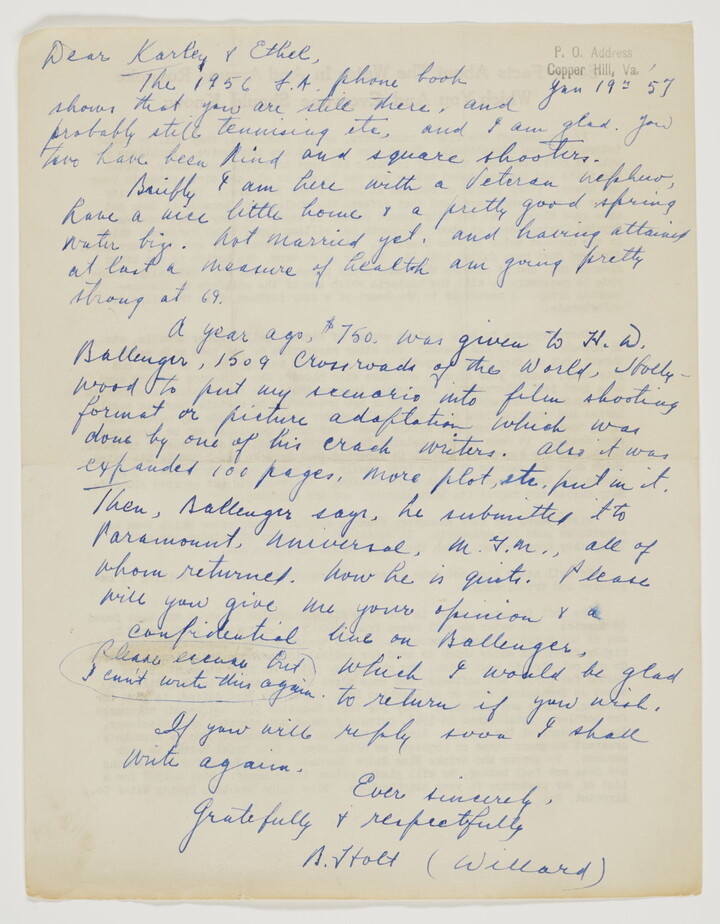 P. O. Address
Copper Hill, Va.
Jan 19th '57
Dear Karley & Ethel,
The 1956 L.A. phone book
shows that you are still there, and
probably still tennising etc, and I am glad. You
two have been kind and square shooters.
Briefly I am here with a Veteran nephew,
have a nice little home & a pretty good spring
water biz. Not married yet. and having attained
at last a measure of health am going pretty
strong at 69.
A year ago, $750. was given to H. D.
Ballenger, 1509 Crossroads of the World, Holly-
wood to put my scenario into film shooting
format or picture adaptation which was
done by one of his crack writers. Also it was
expanded 100 pages, more plot, etc. put in it.
Then, Ballenger says, he submitted it to
Paramount, Universal, M.G.M., all of
whom returned. Now he is quits. Please
will you give me your opinion & a
confidential line on Ballenger,
Please excuse but
I can't write this again.
which I would be glad
to return if you wish.
If you will reply soon I shall
write again.
Ever sincerely,
Gratefully & respectfully
B. Holt (Willard)